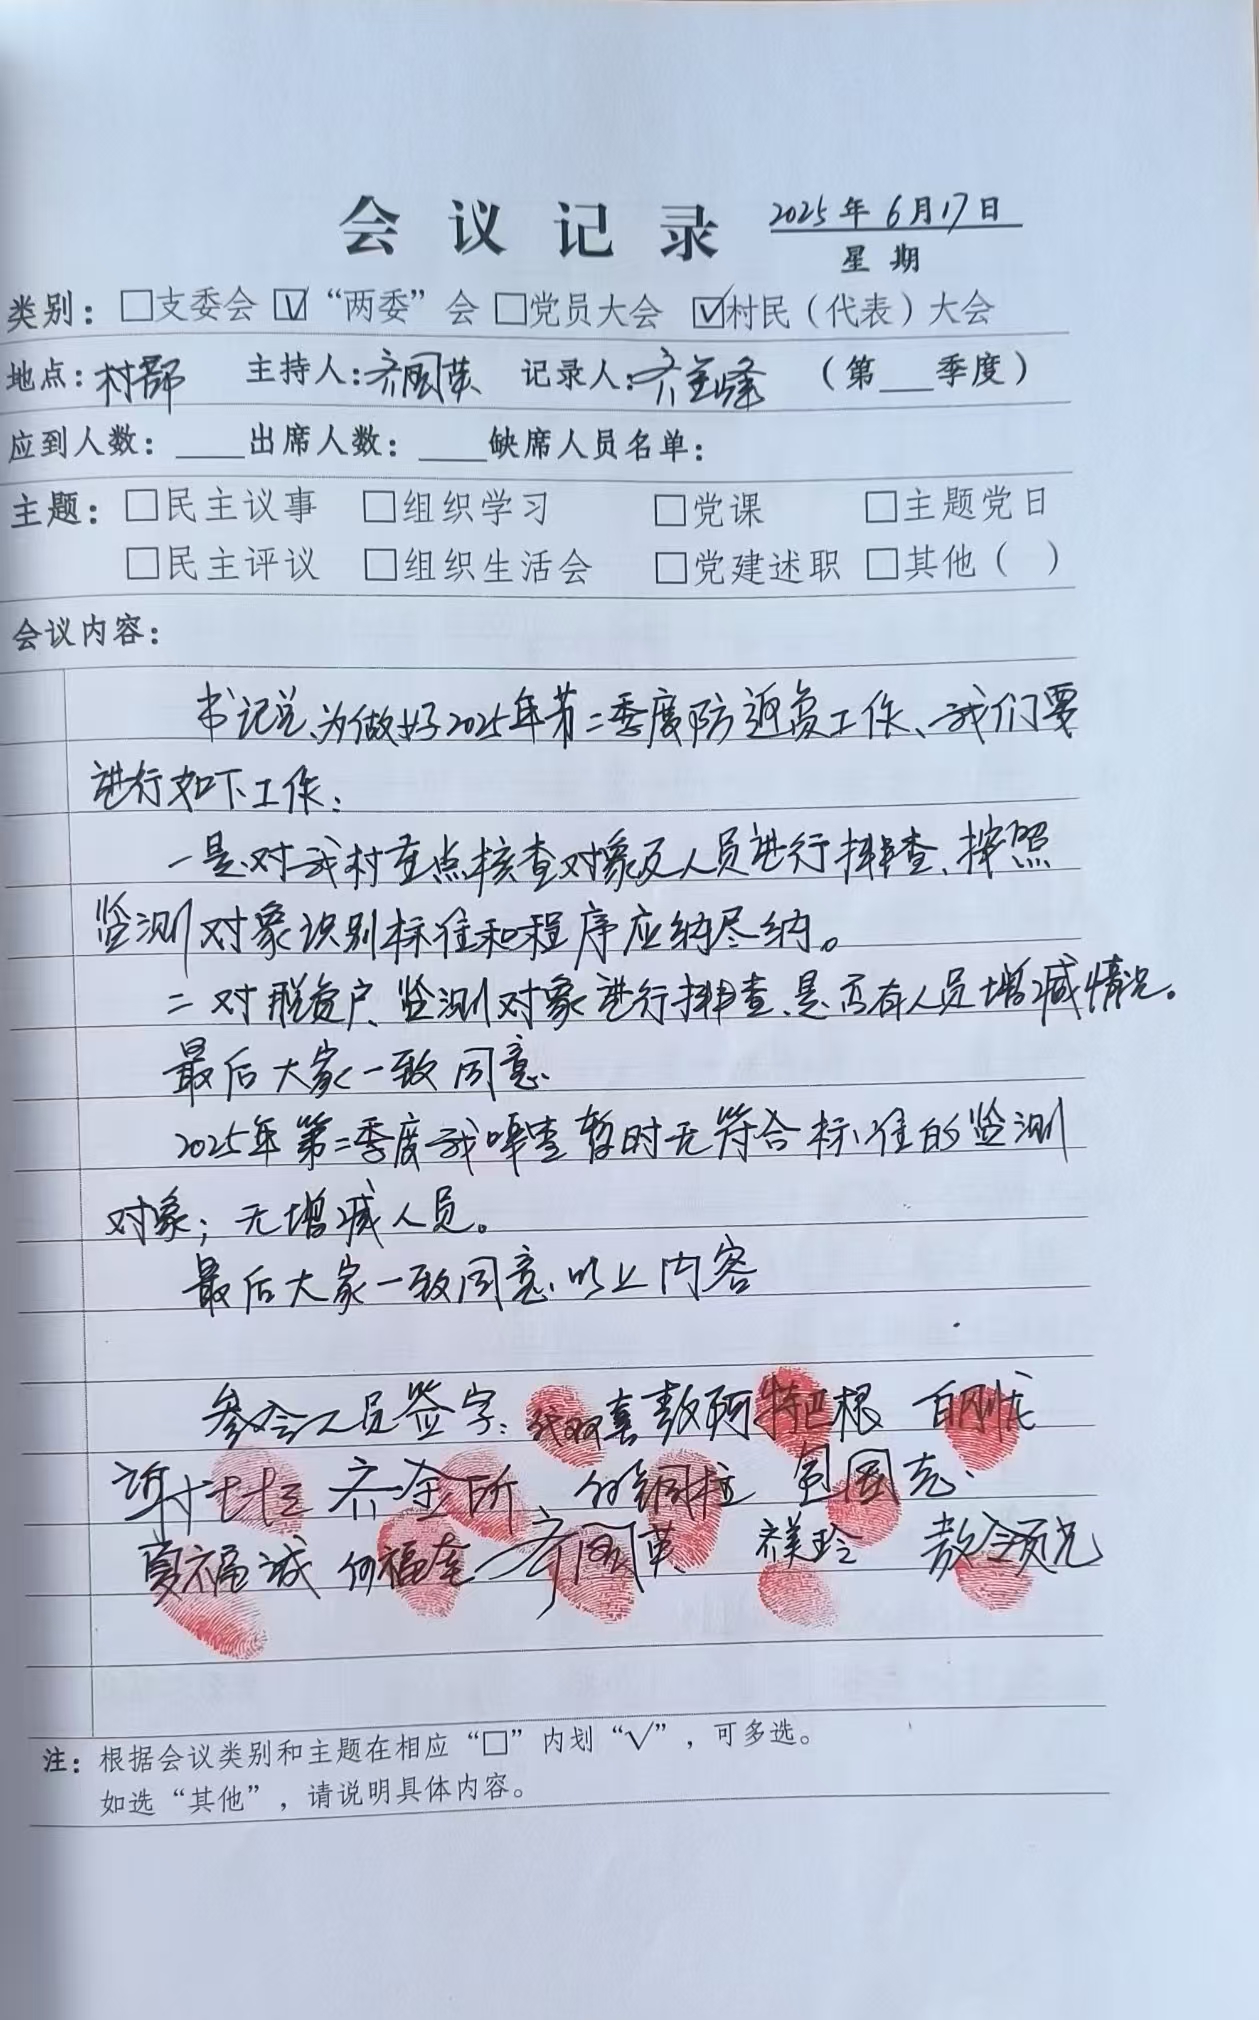 会议记录 2025年6月17日
星期
类别：□支委会 ☑“两委”会 □党员大会 ☑村民（代表）大会
地点：村部 主持人：齐国英 记录人：齐金峰 （第___季度）
应到人数：____出席人数：____缺席人员名单：
主题：□民主议事 □组织学习 □党课 □主题党日
□民主评议 □组织生活会 □党建述职 □其他（ ）
会议内容：
书记说、为做好2025年第二季度防返贫工作、我们要
进行如下工作：
一是对我村重点核查对象及人员进行排查、按照
监测对象识别标准和程序应纳尽纳。
二对脱贫户、监测对象进行排查、是否有人员增减情况。
最后大家一致同意、
2025年第二季度我嘎查暂时无符合标准的监测
对象；无增减人员。
最后大家一致同意以上内容
参会人员签字：双喜 敖阿特巴根
齐金所 何铜柱 包国志
夏福诚 何福奎 齐国英 齐美玲 敖领兄
注：根据会议类别和主题在相应“□”内划“√”，可多选。
如选“其他”，请说明具体内容。